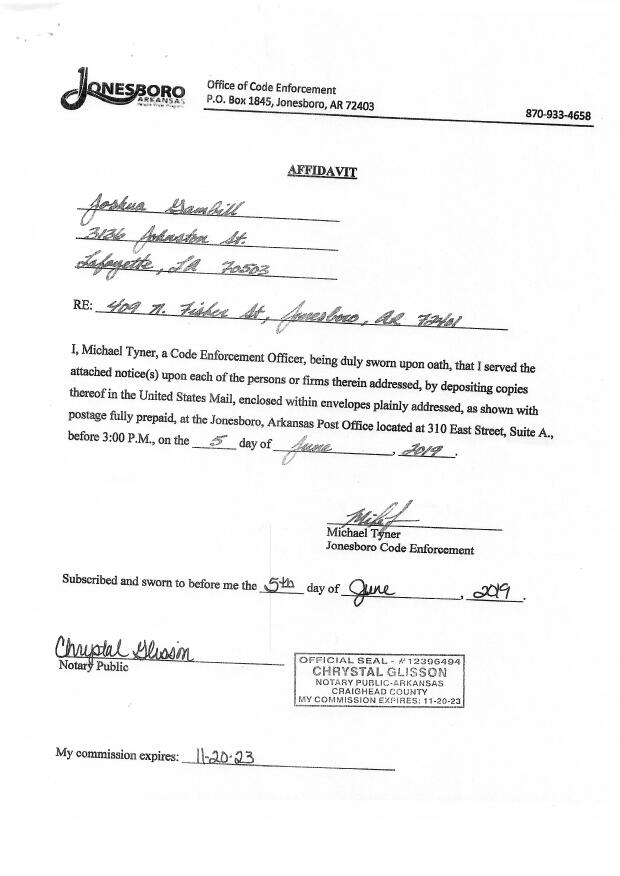 JONESBORO
ARKANSAS
Office of Code Enforcement
P.O. Box 1845, Jonesboro, AR 72403
870-933-4658
AFFIDAVIT
Joshua Gambill
3136 Johnston St.
Lafayette, LA 70503
RE: 409 N. Fisher St, Jonesboro, AR 72401
I, Michael Tyner, a Code Enforcement Officer, being duly sworn upon oath, that I served the
attached notice(s) upon each of the persons or firms therein addressed, by depositing copies
thereof in the United States Mail, enclosed within envelopes plainly addressed, as shown with
postage fully prepaid, at the Jonesboro, Arkansas Post Office located at 310 East Street, Suite A.,
before 3:00 P.M., on the 5 day of June, 2019.
Michael Tyner
Jonesboro Code Enforcement
Subscribed and sworn to before me the 5th day of June, 2019.
Chrystal Glisson
Notary Public
OFFICIAL SEAL - #12396494
CHRYSTAL GLISSON
NOTARY PUBLIC-ARKANSAS
CRAIGHEAD COUNTY
MY COMMISSION EXPIRES: 11-20-23
My commission expires: 11-20-23